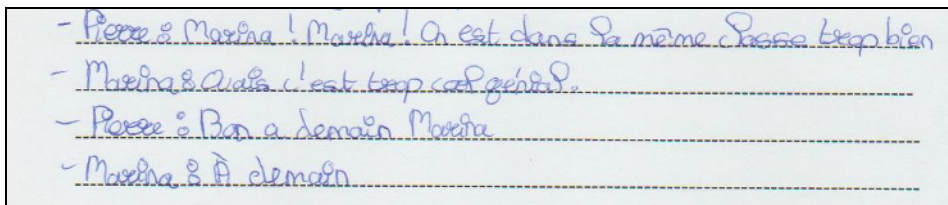 - Pierre : Marina ! Marina ! On est dans la même classe trop bien
- Marina : Ouais c'est trop cool génial.
- Pierre : Bon a demain Marina
- Marina : À demain